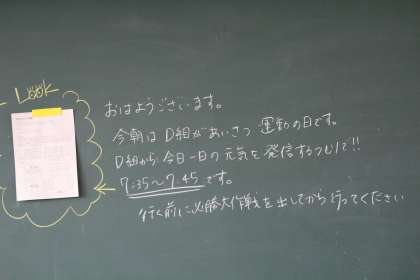 Look
おはようございます。
今朝は D組があいさつ運動の日です。
D組から今日一日の元気を発信するつもりで!!
7:35〜7:45です。
行く前に必勝大作戦を出してから行ってください